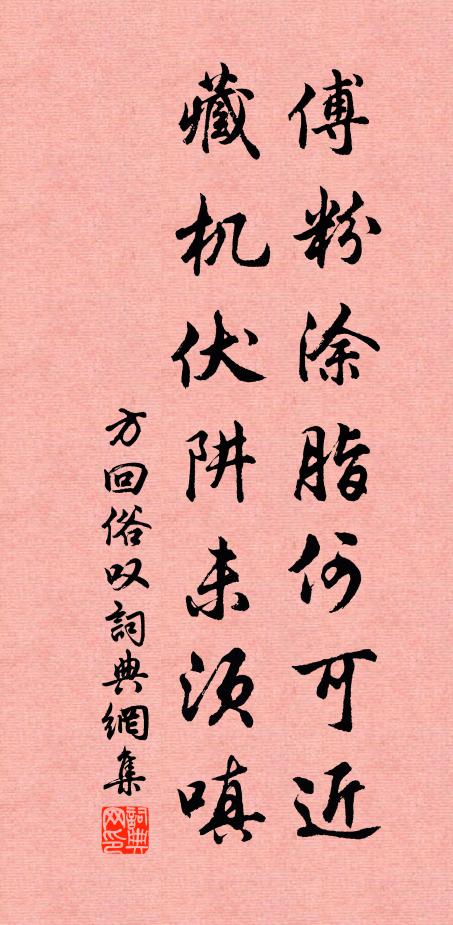 傅粉涂脂何可近
藏机伏阱未须嗔
方回俗叹詞典網集
詞典网印